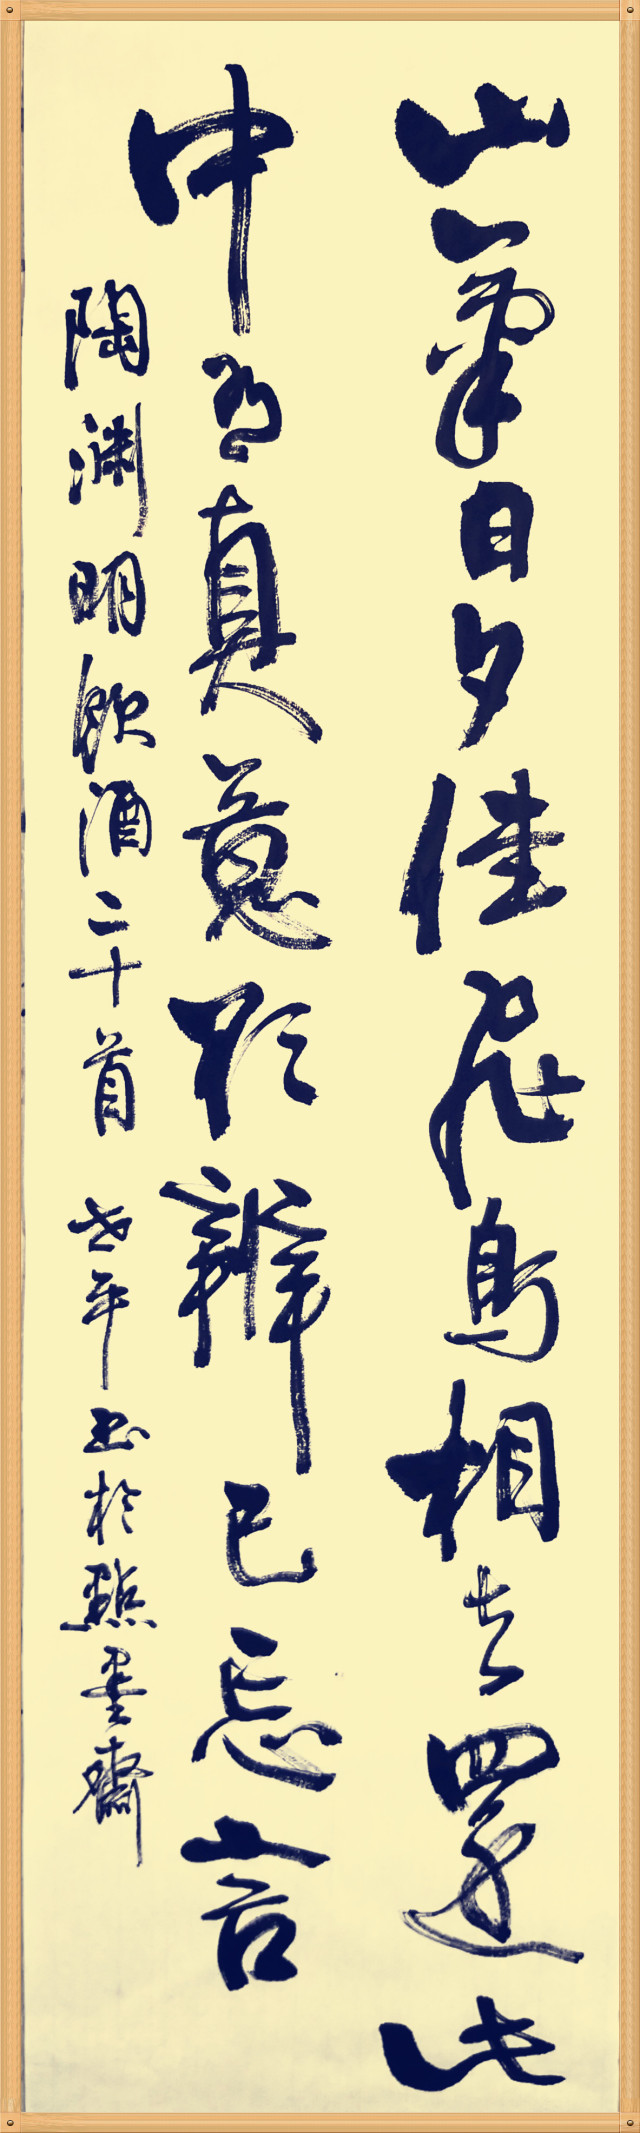 山氣日夕佳飛鳥相与還此
中有真意欲辨已忘言
陶淵明飲酒二十首 年書於點墨齋